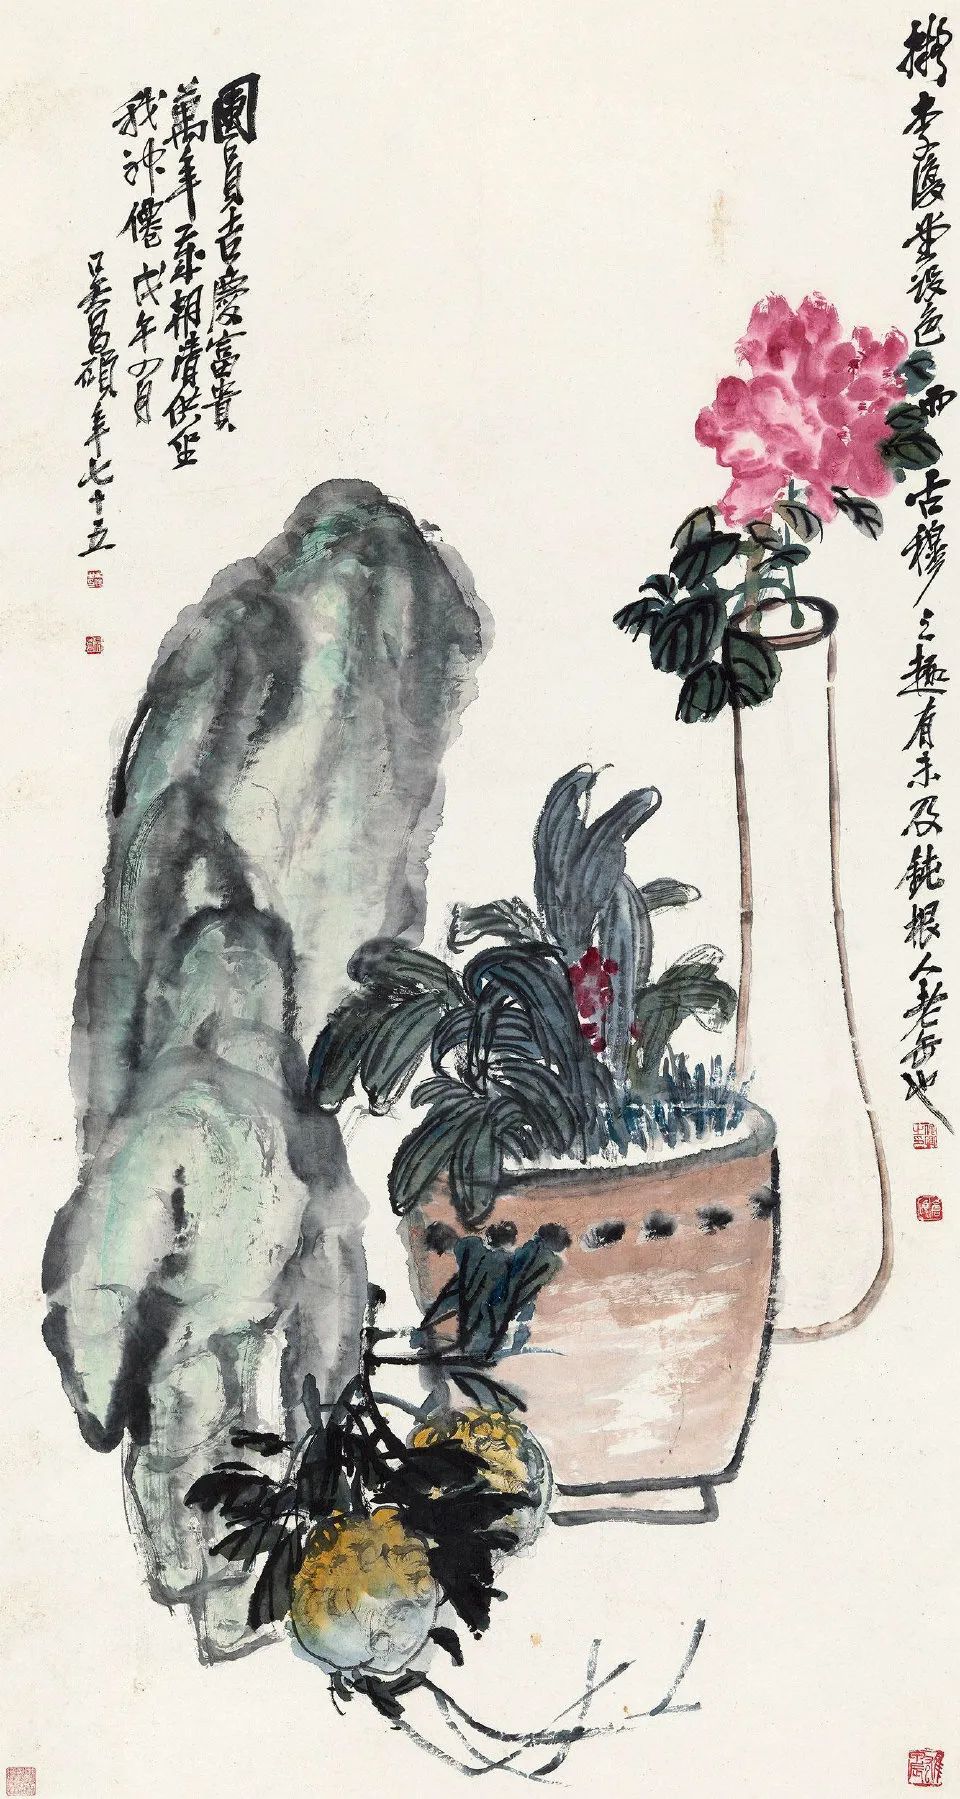 擬李復堂設色而古穆之趣有未及鈍根人老缶也
團員吉慶富貴
萬年歲朝清供坐
我神僊戊午四月
吳昌碩年七十五